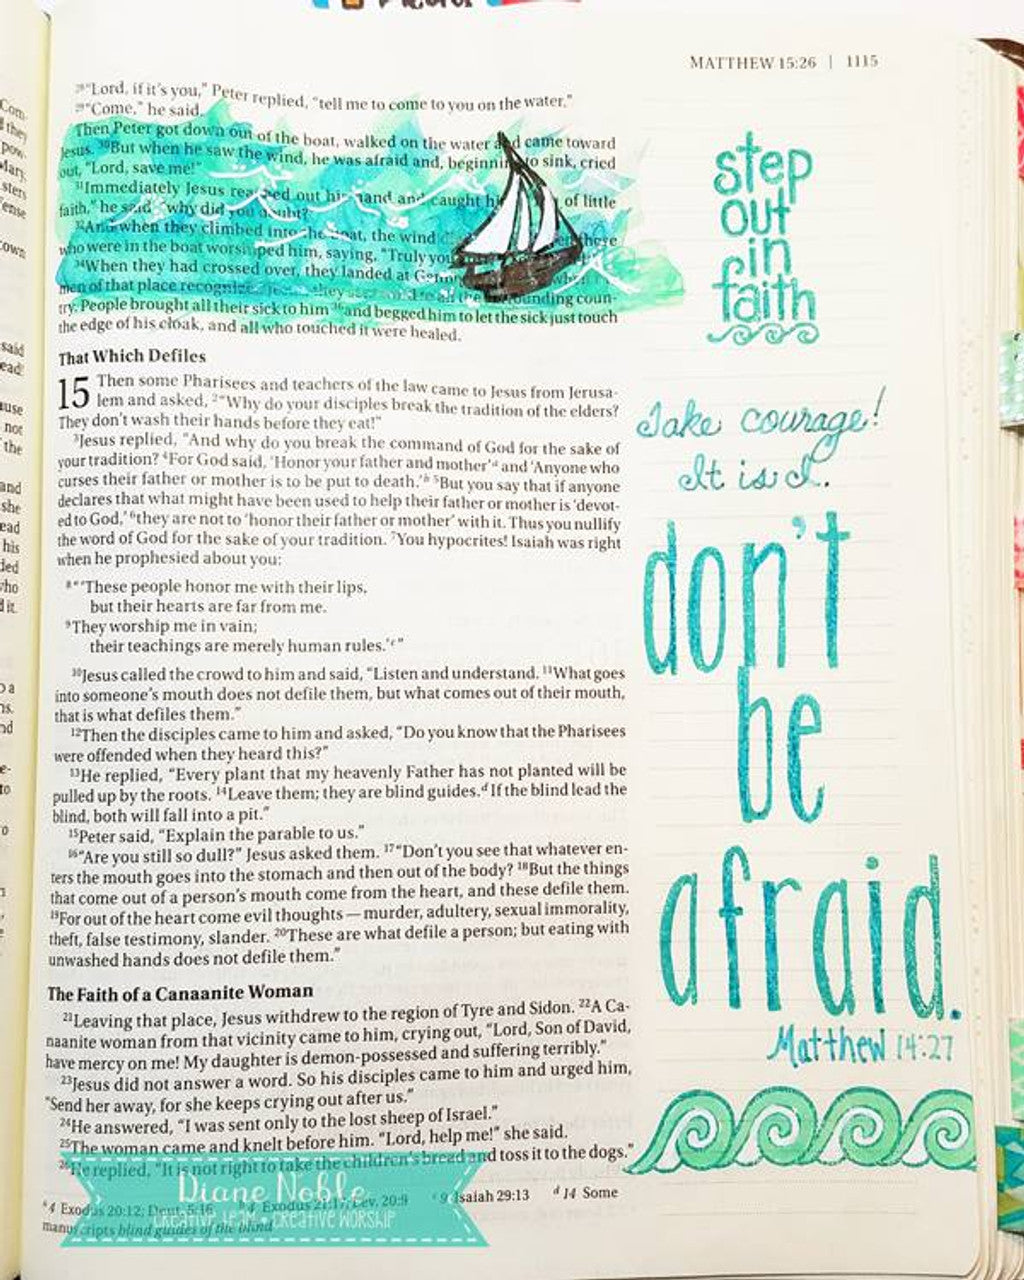 MATTHEW 15:26 | 1115
28"Lord, if it's you," Peter replied, "tell me to come to you on the water."
29"Come," he said.
Then Peter got down out of the boat, walked on the water and came toward
Jesus. 30But when he saw the wind, he was afraid and, beginning to sink, cried
out, "Lord, save me!"
31Immediately Jesus reached out his hand and caught of little
faith," he said, "why did you doubt?"
32And when they climbed into the boat, the wind those
who were in the boat worshiped him, saying, "Truly you
34When they had crossed over, they landed at
men of that place recognized Jesus, they to all the surrounding coun-
try. People brought all their sick to him 36and begged him to let the sick just touch
the edge of his cloak, and all who touched it were healed.
That Which Defiles
15 Then some Pharisees and teachers of the law came to Jesus from Jerusa-
lem and asked, 2"Why do your disciples break the tradition of the elders?
They don't wash their hands before they eat!"
3Jesus replied, "And why do you break the command of God for the sake of
your tradition? 4For God said, 'Honor your father and mother'a and 'Anyone who
curses their father or mother is to be put to death.'b 5But you say that if anyone
declares that what might have been used to help their father or mother is 'devot-
ed to God,' 6they are not to 'honor their father or mother' with it. Thus you nullify
the word of God for the sake of your tradition. 7You hypocrites! Isaiah was right
when he prophesied about you:
8"'These people honor me with their lips,
but their hearts are far from me.
9They worship me in vain;
their teachings are merely human rules.'c"
10Jesus called the crowd to him and said, "Listen and understand. 11What goes
into someone's mouth does not defile them, but what comes out of their mouth,
that is what defiles them."
12Then the disciples came to him and asked, "Do you know that the Pharisees
were offended when they heard this?"
13He replied, "Every plant that my heavenly Father has not planted will be
pulled up by the roots. 14Leave them; they are blind guides.d If the blind lead the
blind, both will fall into a pit."
15Peter said, "Explain the parable to us."
16"Are you still so dull?" Jesus asked them. 17"Don't you see that whatever en-
ters the mouth goes into the stomach and then out of the body? 18But the things
that come out of a person's mouth come from the heart, and these defile them.
19For out of the heart come evil thoughts — murder, adultery, sexual immorality,
theft, false testimony, slander. 20These are what defile a person; but eating with
unwashed hands does not defile them."
The Faith of a Canaanite Woman
21Leaving that place, Jesus withdrew to the region of Tyre and Sidon. 22A Ca-
naanite woman from that vicinity came to him, crying out, "Lord, Son of David,
have mercy on me! My daughter is demon-possessed and suffering terribly."
23Jesus did not answer a word. So his disciples came to him and urged him,
"Send her away, for she keeps crying out after us."
24He answered, "I was sent only to the lost sheep of Israel."
25The woman came and knelt before him. "Lord, help me!" she said.
26He replied, "It is not right to take the children's bread and toss it to the dogs."
a 4 Exodus 20:12; Deut. 5:16 b 4 Exodus 21:17; Lev. 20:9 c 9 Isaiah 29:13 d 14 Some
manuscripts blind guides of the blind
Diane Noble
CREATIVE WORSHIP
step
out
in
faith
Take courage!
It is I.
don't
be
afraid.
Matthew 14:27